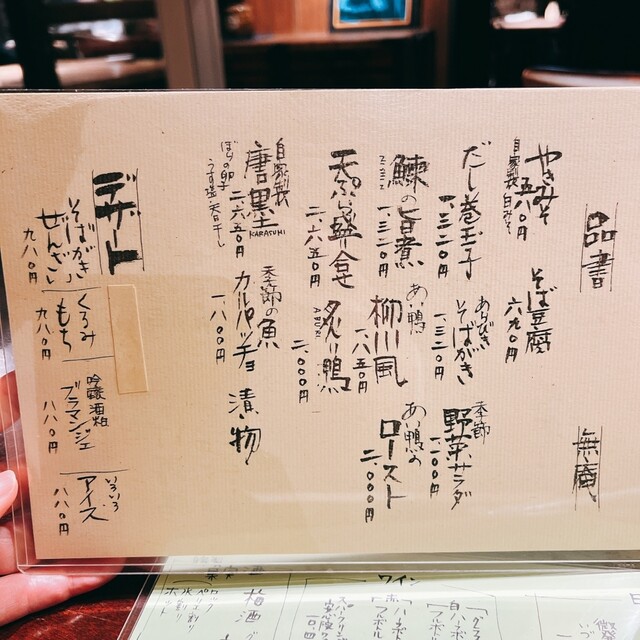 品書
無庵
やきみそ
五八〇円
自家製白みそ
そば豆腐
六九〇円
だし巻玉子
一、三二〇円
あらびき
そばがき
一、三二〇円
季節
野菜サラダ
一、二〇〇円
鰊の旨煮
一、三二〇円
あい鴨
柳川風
一、八五〇円
あい鴨の
ロースト
二、〇〇〇円
天ぷら盛合せ
二、六五〇円
炙り鴨
ABURI
二、〇〇〇円
自家製
唐墨
KARASUMI
二、六五〇円
ぼらの卵子
うす塩天日干し
季節の魚
カルパッチョ
一、八〇〇円
漬物
デザート
そばがき
ぜんざい
九八〇円
くるみ
もち
九八〇円
吟醸酒粕
ブラマンジェ
八八〇円
いろいろ
アイス
八八〇円
ワイン
梅酒